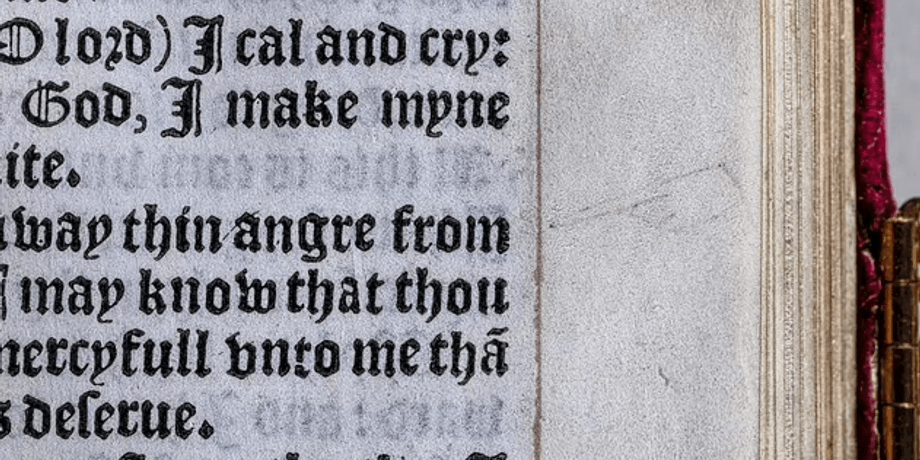 O lord) I cal and cry:
God, I make myne
ite.
away thin angre from
I may know that thou
mercyfull vnto me thã
s deserue.